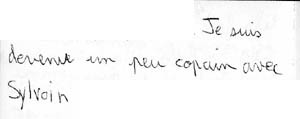 Je suis
devenue un peu copain avec
Sylvain